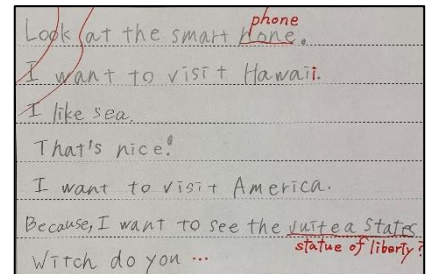 phone
Look at the smart hone.
I want to visit Hawaii.
I like sea.
That's nice!
I want to visit America.
Because, I want to see the
statue of liberty?
Witch do you ...